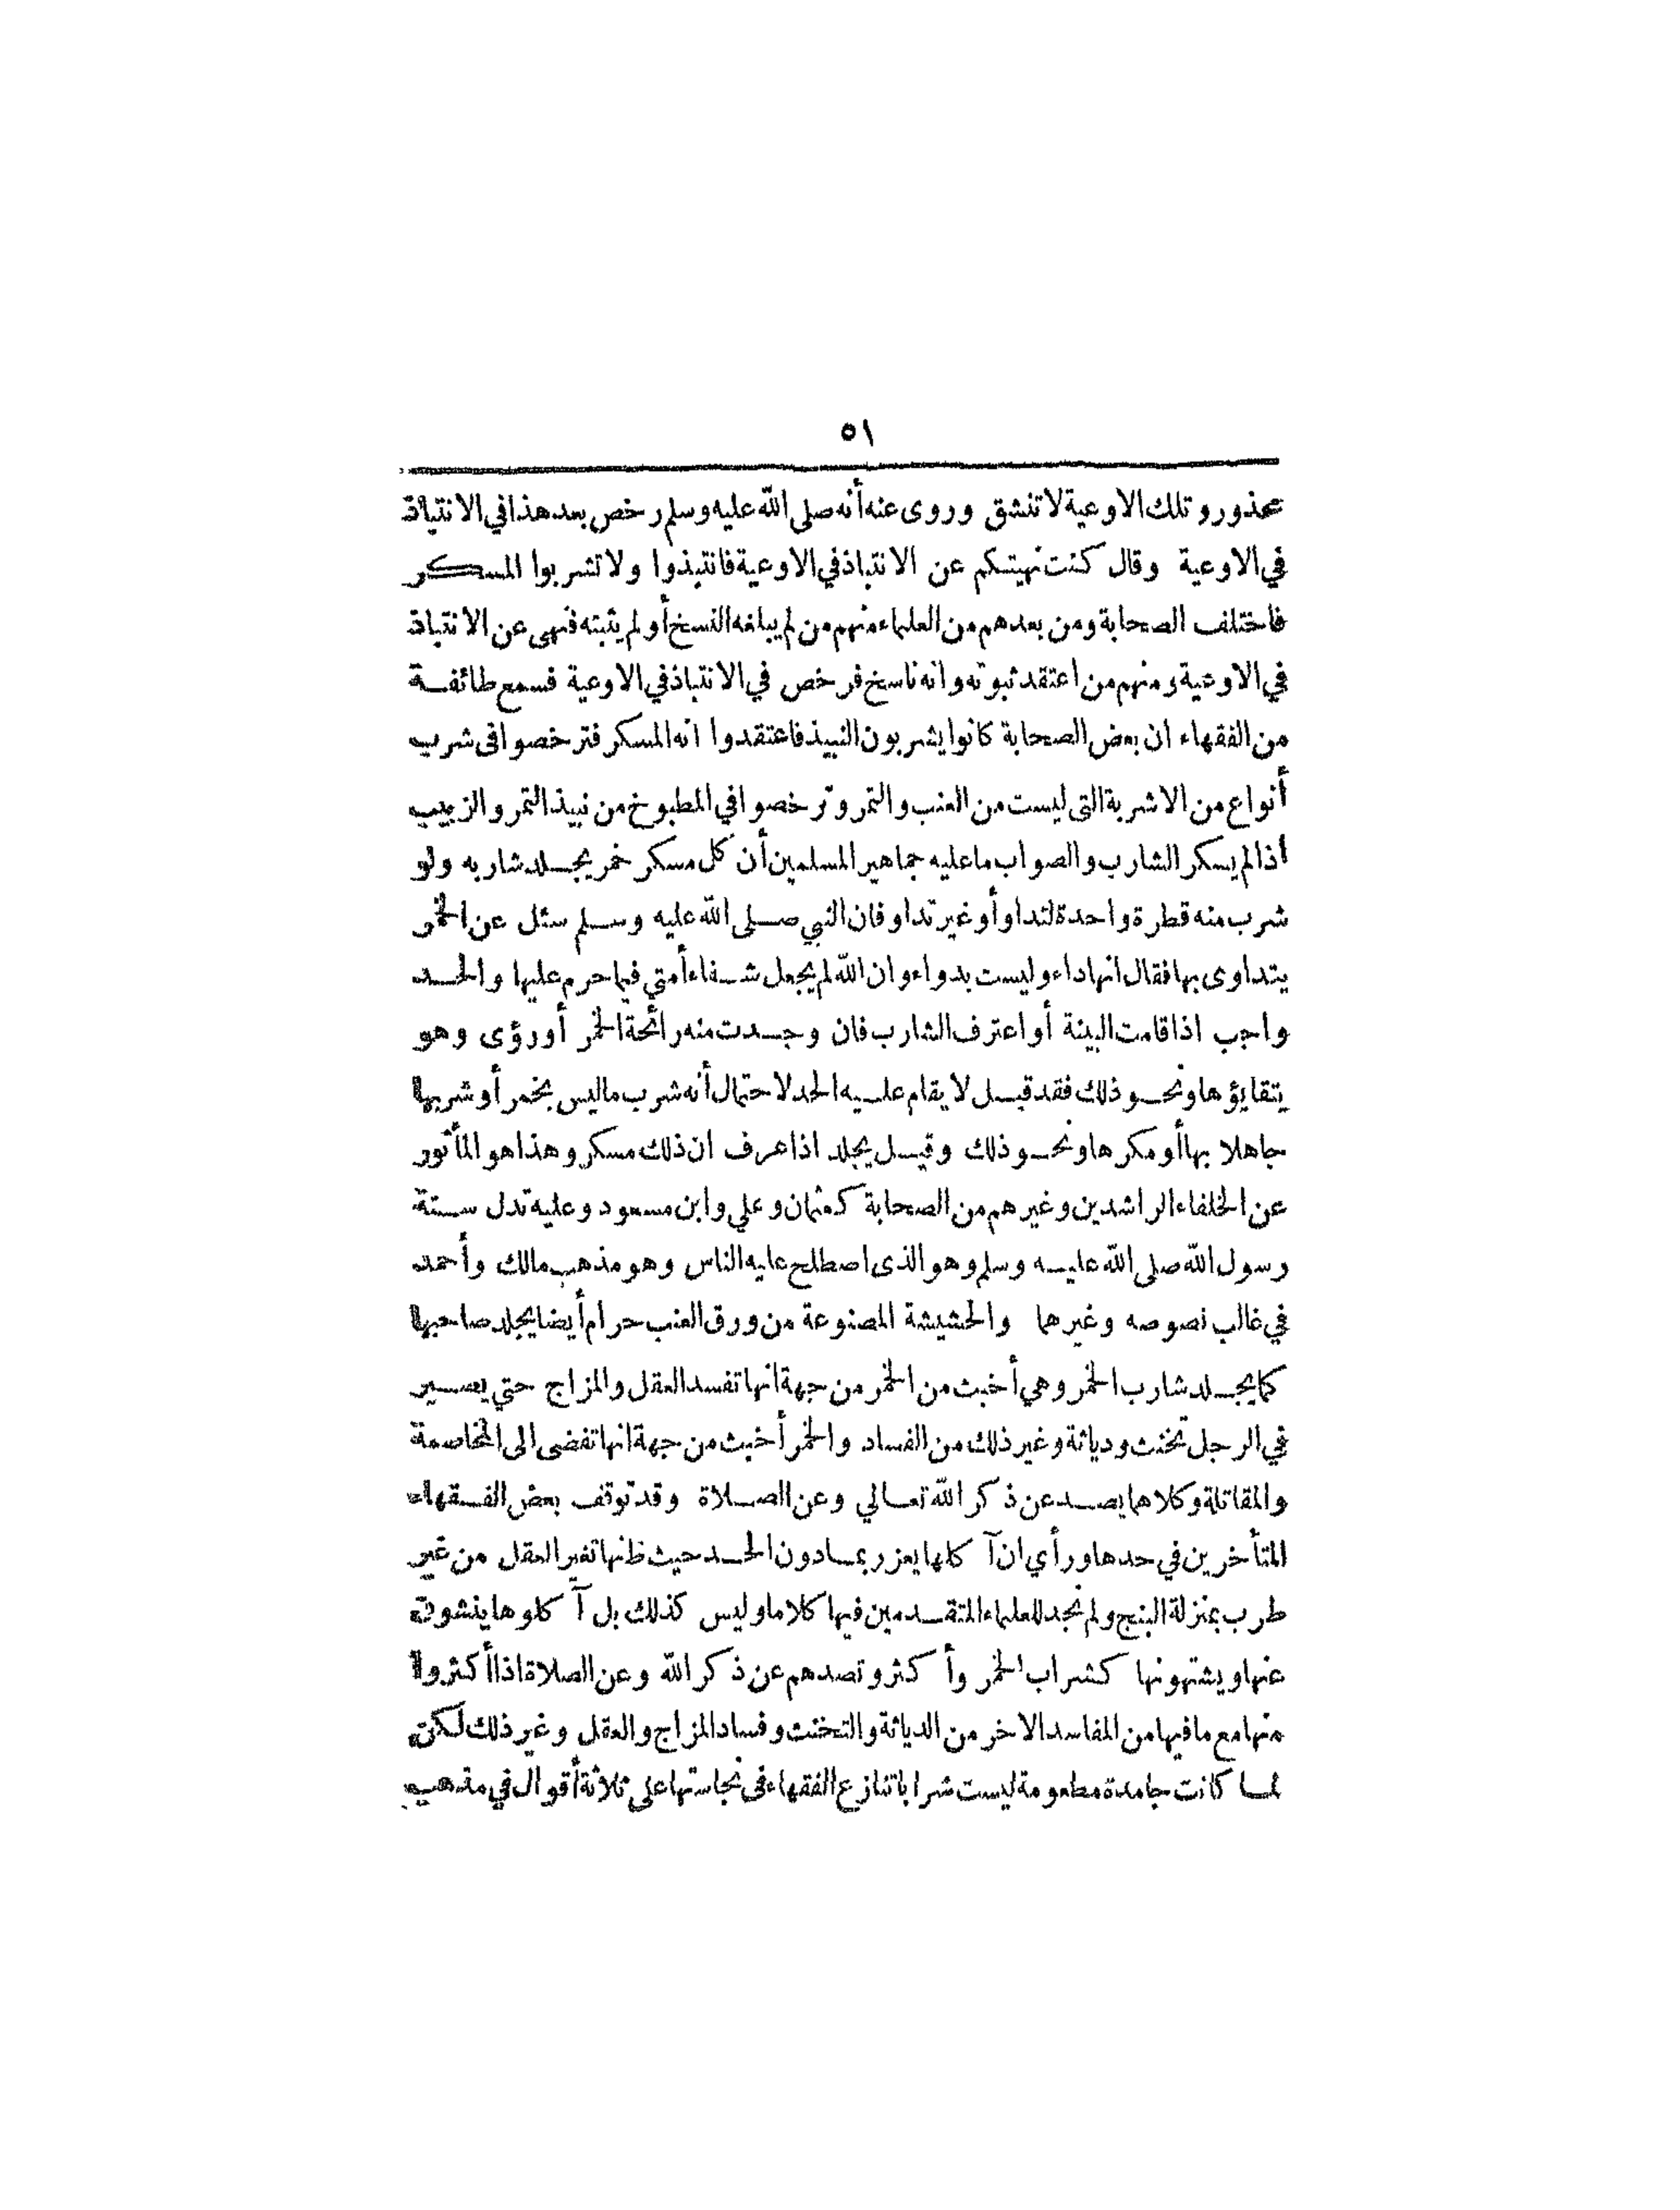 ٥١
محذور وتلك الاوعية لا تنشق وروى عنه أنه صلى الله عليه وسلم رخص بعد هذا في الانتباذ
في الاوعية وقال كنت نهيتكم عن الانتباذ في الاوعية فانتبذوا ولا تشربوا المسكر
فاختلف الصحابة ومن بعدهم من العلماء منهم من لم يبلغه النسخ أو لم يثبته فنهى عن الانتباذ
في الاوعية ومنهم من اعتقد ثبوته وانه ناسخ فرخص في الانتباذ في الاوعية فسمع طائفة
من الفقهاء ان بعض الصحابة كانوا يشربون النبيذ فاعتقدوا انه المسكر فترخصوا فى شرب
أنواع من الاشربة التى ليست من العنب والتمر وترخصوا في المطبوخ من نبيذ التمر والزبيب
اذا لم يسكر الشارب والصواب ما عليه جماهير المسلمين أن كل مسكر خمر يجلد شاربه ولو
شرب منه قطرة واحدة لتداو أو غير تداو فان النبي صلى الله عليه وسلم سئل عن الخمر
يتداوى بها فقال انها داء وليست بدواء وان الله لم يجعل شفاء أمتي فيما حرم عليها والحد
واجب اذا قامت البينة أو اعترف الشارب فان وجدت منه رائحة الخمر أو رؤى وهو
يتقايؤها ونحو ذلك فقد قيل لا يقام عليه الحد لاحتمال أنه شرب ما ليس بخمر أو شربها
جاهلا بها أو مكرها ونحو ذلك وقيل يجلد اذا عرف ان ذلك مسكر وهذا هو المأثور
عن الخلفاء الراشدين وغيرهم من الصحابة كعثمان وعلي وابن مسعود وعليه تدل سنة
رسول الله صلى الله عليه وسلم وهو الذى اصطلح عليه الناس وهو مذهب مالك وأحمد
في غالب نصوصه وغيرهما والحشيشة المصنوعة من ورق العنب حرام أيضا يجلد صاحبها
كما يجلد شارب الخمر وهي أخبث من الخمر من جهة انها تفسد العقل والمزاج حتي يصير
في الرجل تخنث ودياثة وغير ذلك من الفساد والخمر أخبث من جهة انها تفضى الى المخاصمة
والمقاتلة وكلاهما يصد عن ذكر الله تعالي وعن الصلاة وقد توقف بعض الفقهاء
المتأخرين في حدها ورأي ان آكلها يعزر بما دون الحد حيث ظنها تغير العقل من غير
طرب بمنزلة البنج ولم نجد للعلماء المتقدمين فيها كلاما وليس كذلك بل آكلوها ينشون
عنها ويشتهونها كشراب الخمر وأكثر وتصدهم عن ذكر الله وعن الصلاة اذا أكثروا
منها مع ما فيها من المفاسد الاخر من الدياثة والتخنث وفساد المزاج والعقل وغير ذلك لكن
لما كانت جامدة مطعومة ليست شرابا تنازع الفقهاء فى نجاستها على ثلاثة أقوال في مذهب